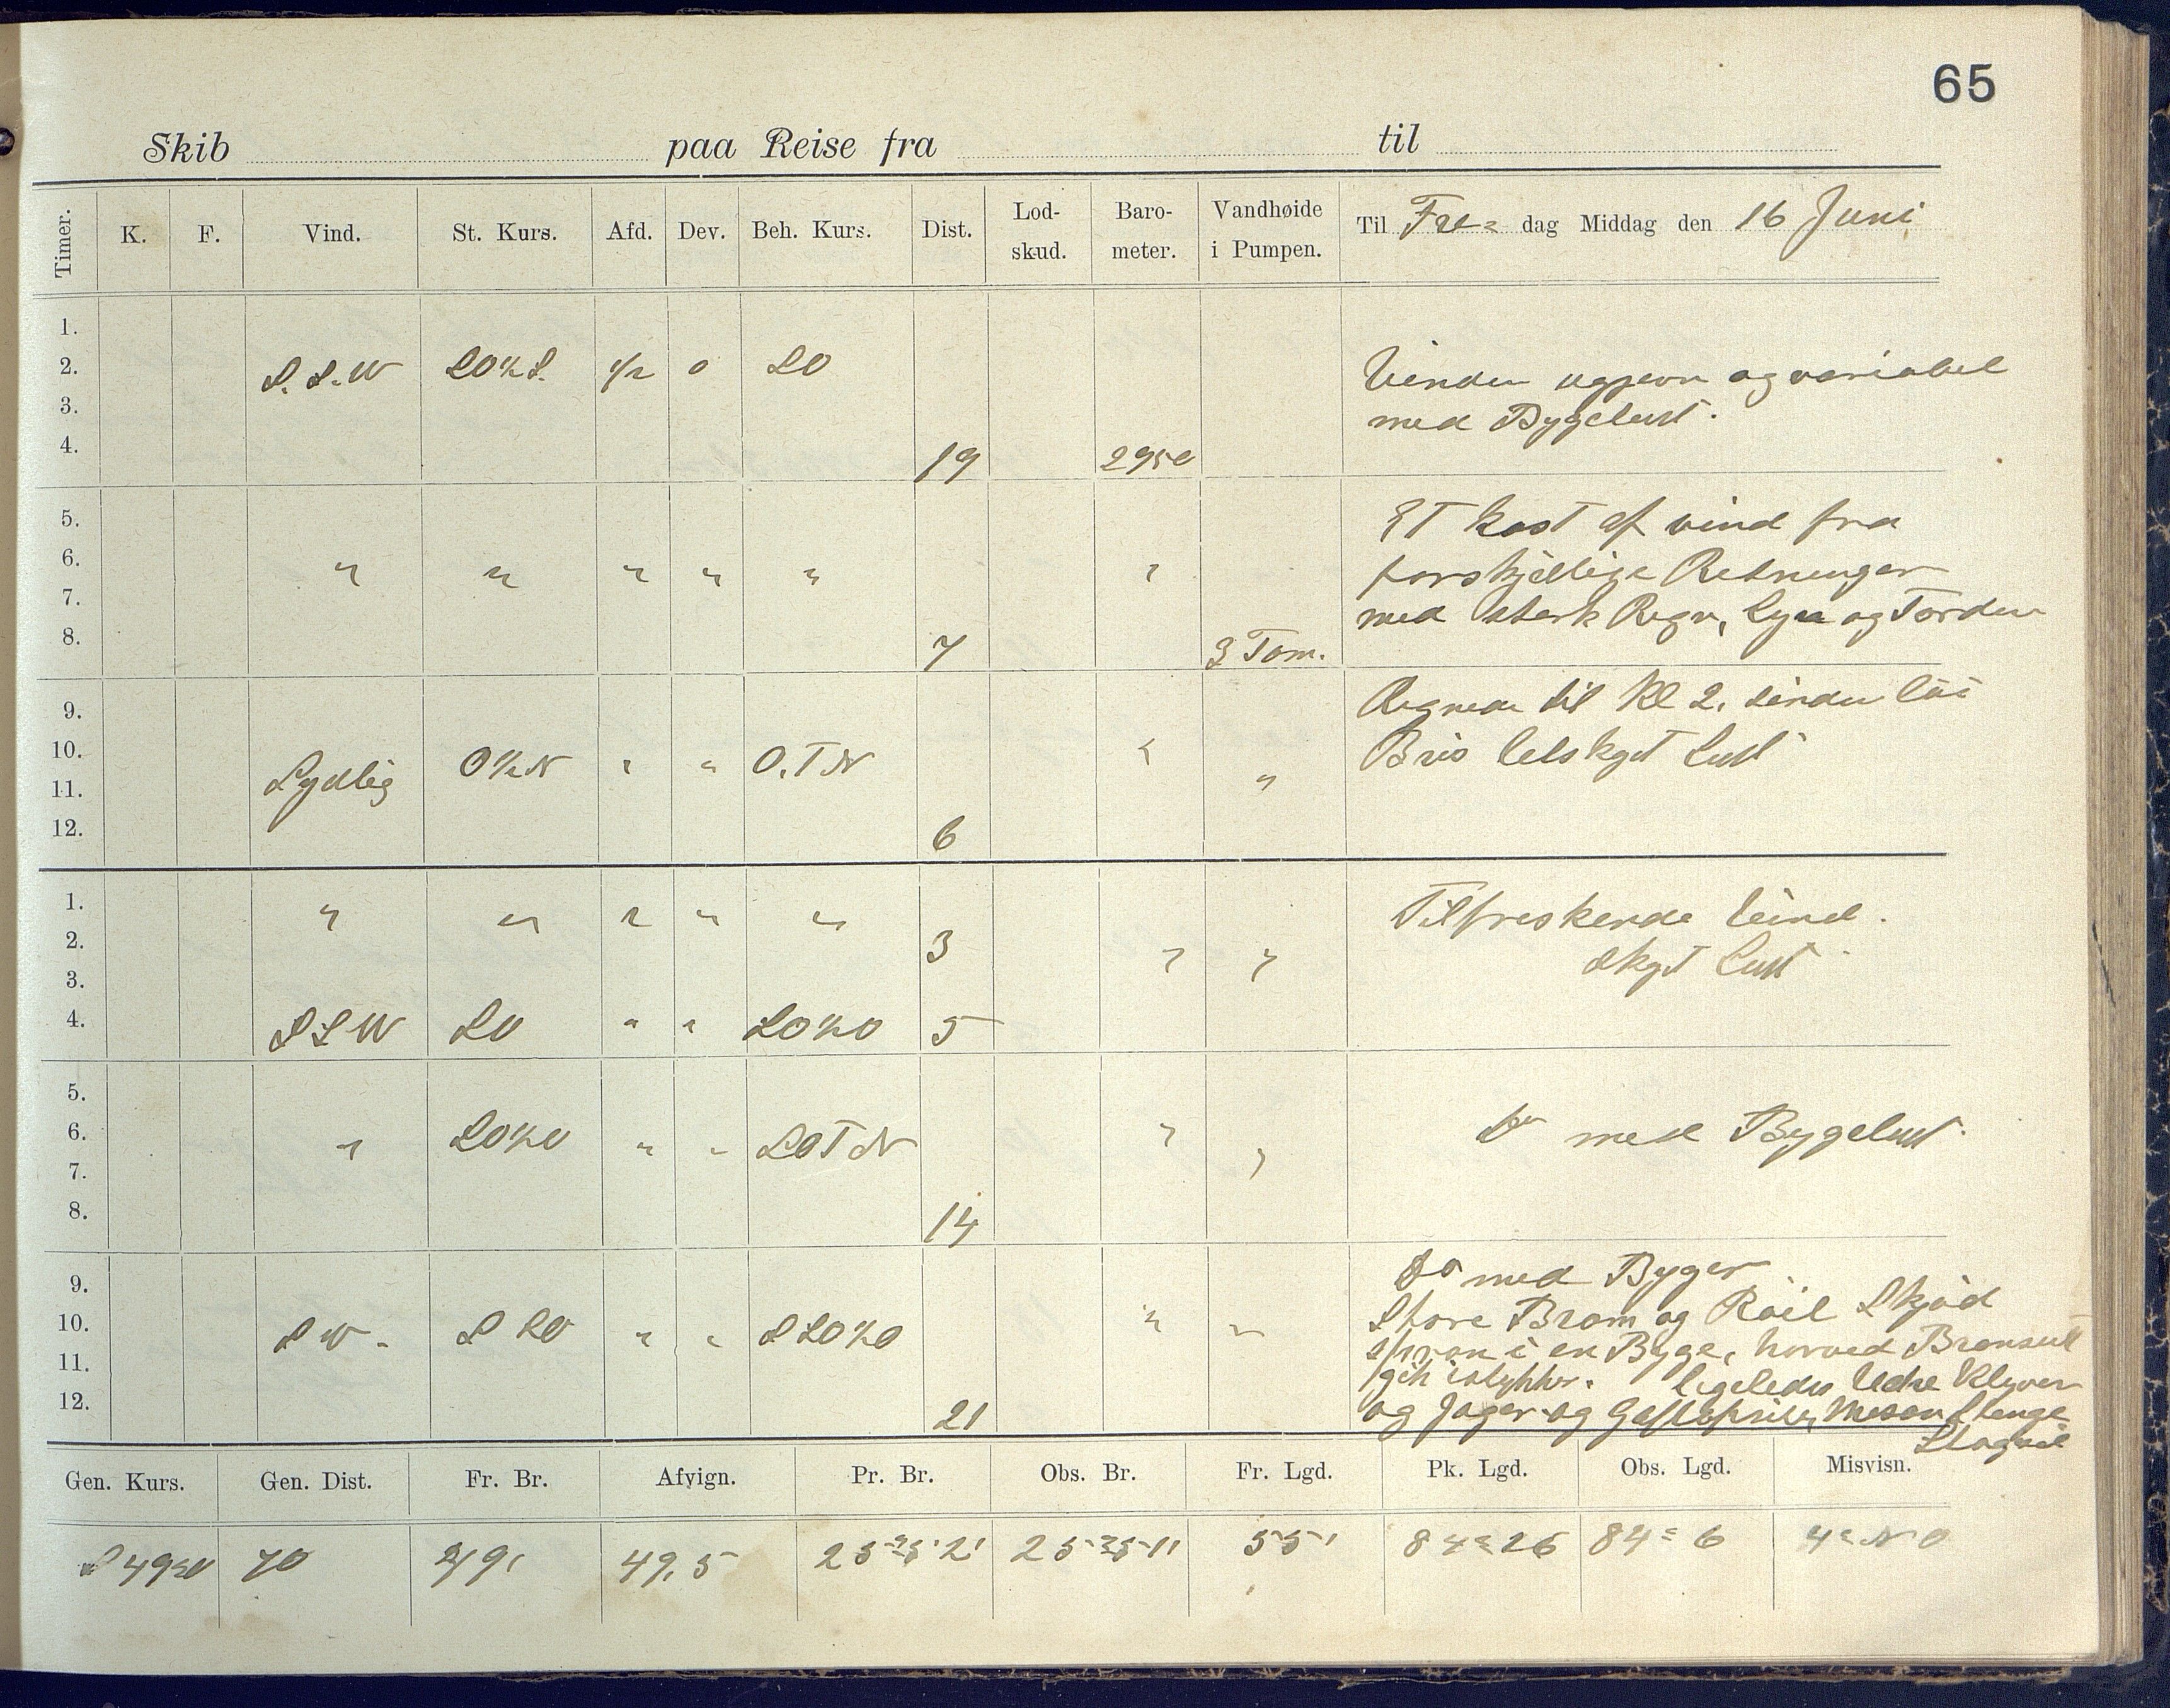 65
Skib paa Reise fra til
Timer. K. F. Vind. St. Kurs. Afd. Dev. Beh. Kurs. Dist. Lod-skud. Baro-meter. Vandhøide i Pumpen. Til Fre= dag Middag den 16 Juni
1.
2. S.S.W SO½S. ½ 0 SO Vinden ugjevn og variabel
3. med Bygeluft.
4. 19 2950
5. Et kast af vind fra
6. " " " " " " forskjellige Retninger
7. med sterk Regn, Lyn og Torden
8. 7 3 Tom.
9. Regnede til Kl 2. siden løi
10. Sydlig O½N " " O.T.N " Bris letskyet Luft
11. "
12. 6
1. " " " " " Tilfreskende Vind.
2. 3 " " skyet Luft
3.
4. SSW SO " " SO½O 5
5.
6. " SO½O " " SOTN " " Do med Bygeluft.
7.
8. 14
9. Do med Byger
10. SW. SSO " " SSO½O " " Store Bram og Röil Skjöd
11. sprang i en Byge, horved Bramseil
gik istykker. ligeledes Udre Klyver
12. 21 og Jager og Mesan Stenge
Stagseil
Gen. Kurs. Gen. Dist. Fr. Br. Afvign. Pr. Br. Obs. Br. Fr. Lgd. Pk. Lgd. Obs. Lgd. Misvisn.
S 49° O 70 49,5 55' 84° 26 84° 6 4° NO